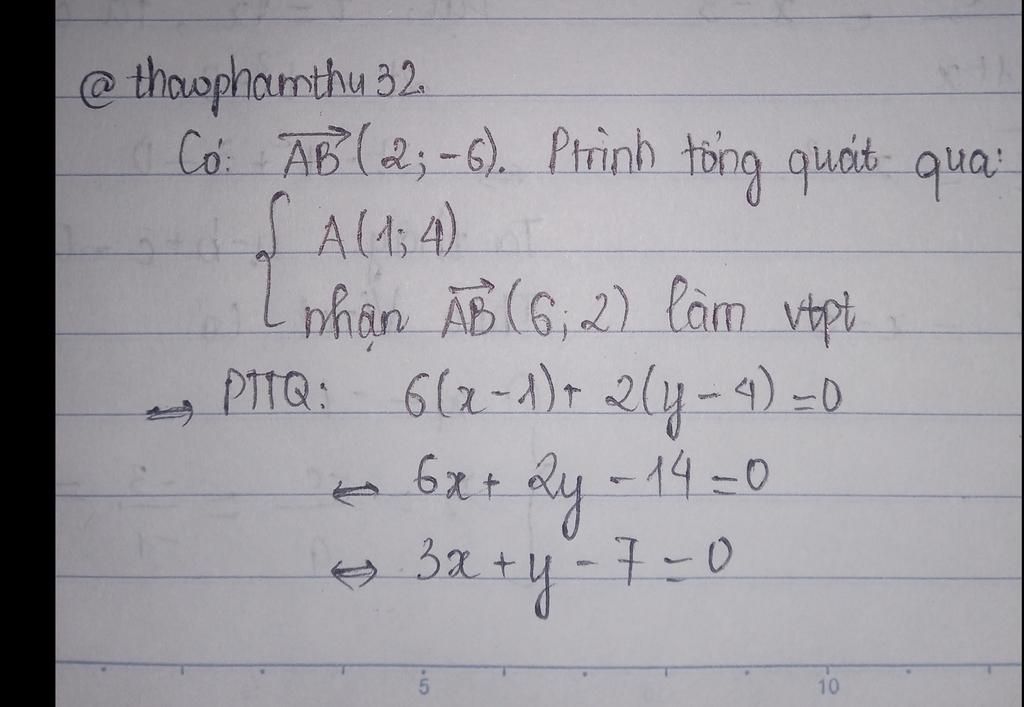 @thaophamthu32.
Có: \overrightarrow{AB}(2;-6). Ptrình tổng quát qua:
{ A(1;4)
nhận \overrightarrow{AB}(6;2) làm vtpt
⇒ PTTQ: 6(x-1)+ 2(y-4)=0
⇔ 6x+ 2y -14=0
⇔ 3x+y-7=0
5 10